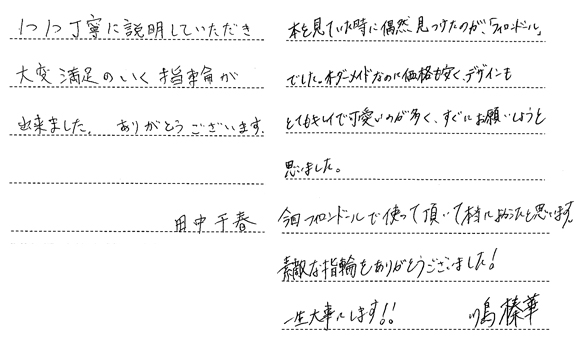 1つ1つ丁寧に説明していただき
大変満足のいく指輪が
出来ました。ありがとうございます。
田中千春
本を見ていた時に偶然見つけたのが、「フィロンドール」
でした。オーダーメイドなのに価格も安く、デザインも
とてもキレイで可愛いのが多く、すぐにお願いしようと
思いました。
今回フィロンドールで使って頂いて本当によかったと思います。
素敵な指輪をありがとうございました!
一生大事にします!!
嶋 榛華